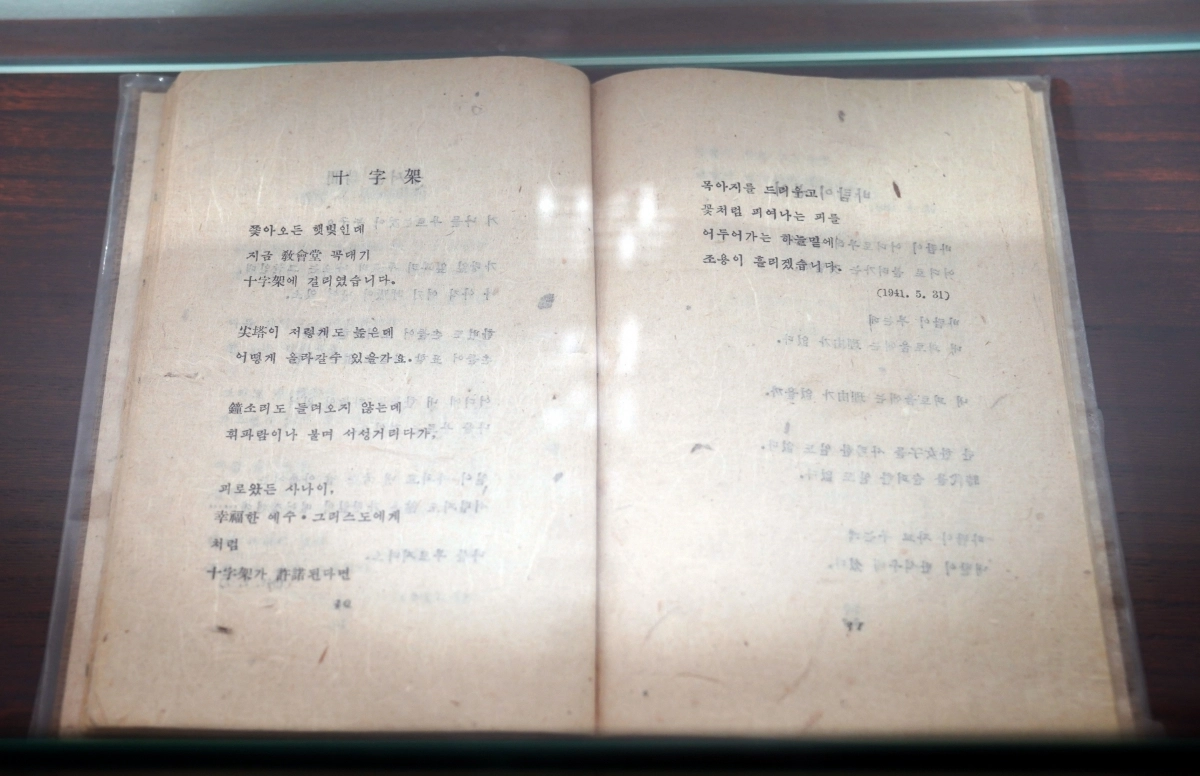 十字架
쫓아오든 햇빛인데
지금 敎會堂 꼭대기
十字架에 걸리였습니다.
尖塔이 저렇게도 높은데
어떻게 올라갈수 있을가요.
鐘소리도 들려오지 않는데
휘파람이나 불며 서성거리다가,
괴로왔든 사나이,
幸福한 예수・그리스도에게
처럼
十字架가 許諾된다면
10
목아지를 드리우고
꽃처럼 피여나는 피를
어두어가는 하늘밑에
조용이 흘리겠습니다.
(1941. 5. 31)
11